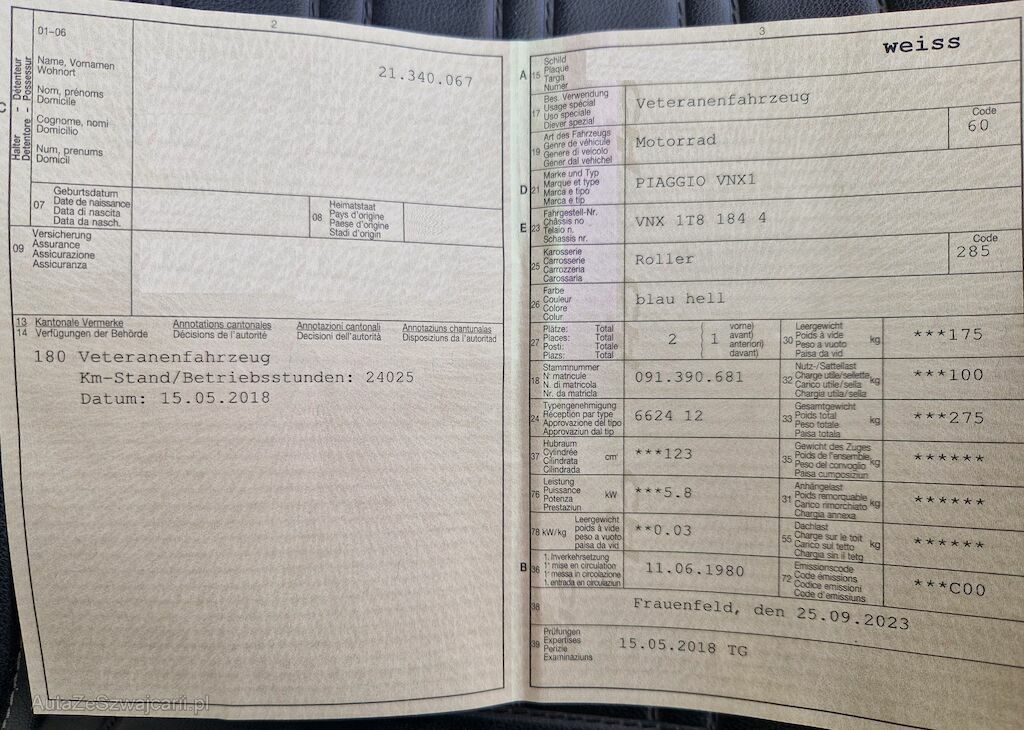 2
01-06
Halter Détenteur
Detentore - Possessur
C
Name, Vornamen
Wohnort
21.340.067
Nom, prénoms
Domicile
Cognome, nomi
Domicilio
Num, prenums
Domicil
07
Geburtsdatum
Date de naissance
Data di nascita
Data da nasch.
08
Heimatstaat
Pays d'origine
Paese d'origine
Stadi d'origin
09
Versicherung
Assurance
Assicurazione
Assicuranza
13 Kantonale Vermerke Annotations cantonales Annotazioni cantonali Annotaziuns chantunalas
14 Verfügungen der Behörde Décisions de l'autorité Decisioni dell'autorità Disposiziuns da l'autoritad
180 Veteranenfahrzeug
Km-Stand/Betriebsstunden: 24025
Datum: 15.05.2018
AutaZeSzwajcarii.pl
3
weiss
A 15
Schild
Plaque
Targa
Numer
17
Bes. Verwendung
Usage spécial
Uso speciale
Diever spezial
Veteranenfahrzeug
19
Art des Fahrzeugs
Genre de véhicule
Genere di veicolo
Gener dal vehichel
Motorrad
Code
60
D 21
Marke und Typ
Marque et type
Marca e tipo
Marca e tip
PIAGGIO VNX1
E 23
Fahrgestell-Nr.
Châssis no
Telaio n.
Schassis nr.
VNX 1T8 184 4
25
Karosserie
Carrosserie
Carrozzeria
Carossaria
Roller
Code
285
26
Farbe
Couleur
Colore
Colur
blau hell
27
Plätze: Total
Places: Total
Posti: Totale
Plazs: Total
2 { 1
vorne)
avant)
anteriori)
davant)
30
Leergewicht
Poids à vide
Peso a vuoto
Paisa da vid
kg
***175
18
Stammnummer
N° matricule
N. di matricola
Nr. da matricla
091.390.681
32
Nutz-/Sattellast
Charge utile/sellette
Carico utile/sella
Chargia utila/sella
kg
***100
24
Typengenehmigung
Réception par type
Approvazione del tipo
Approvaziun dal tip
6624 12
33
Gesamtgewicht
Poids total
Peso totale
Paisa totala
kg
***275
37
Hubraum
Cylindrée
Cilindrata
Cilindrada
cm³
***123
35
Gewicht des Zuges
Poids de l'ensemble
Peso del convoglio
Paisa cumposiziun
kg
******
76
Leistung
Puissance
Potenza
Prestaziun
kW
***5.8
31
Anhängelast
Poids remorquable
Carico rimorchiato
Chargia annexa
kg
******
78 kW/kg
Leergewicht
poids à vide
peso a vuoto
paisa da vid
**0.03
55
Dachlast
Charge sur le toit
Carico sul tetto
Chargia sin il tetg
kg
******
B 36
1. Inverkehrsetzung
1re mise en circulation
1a messa in circolazione
1. entrada en circulaziun
11.06.1980
72
Emissionscode
Code émissions
Codice emissioni
Code d'emissiuns
***C00
38
Frauenfeld, den 25.09.2023
39
Prüfungen
Expertises
Perizie
Examinaziuns
15.05.2018 TG